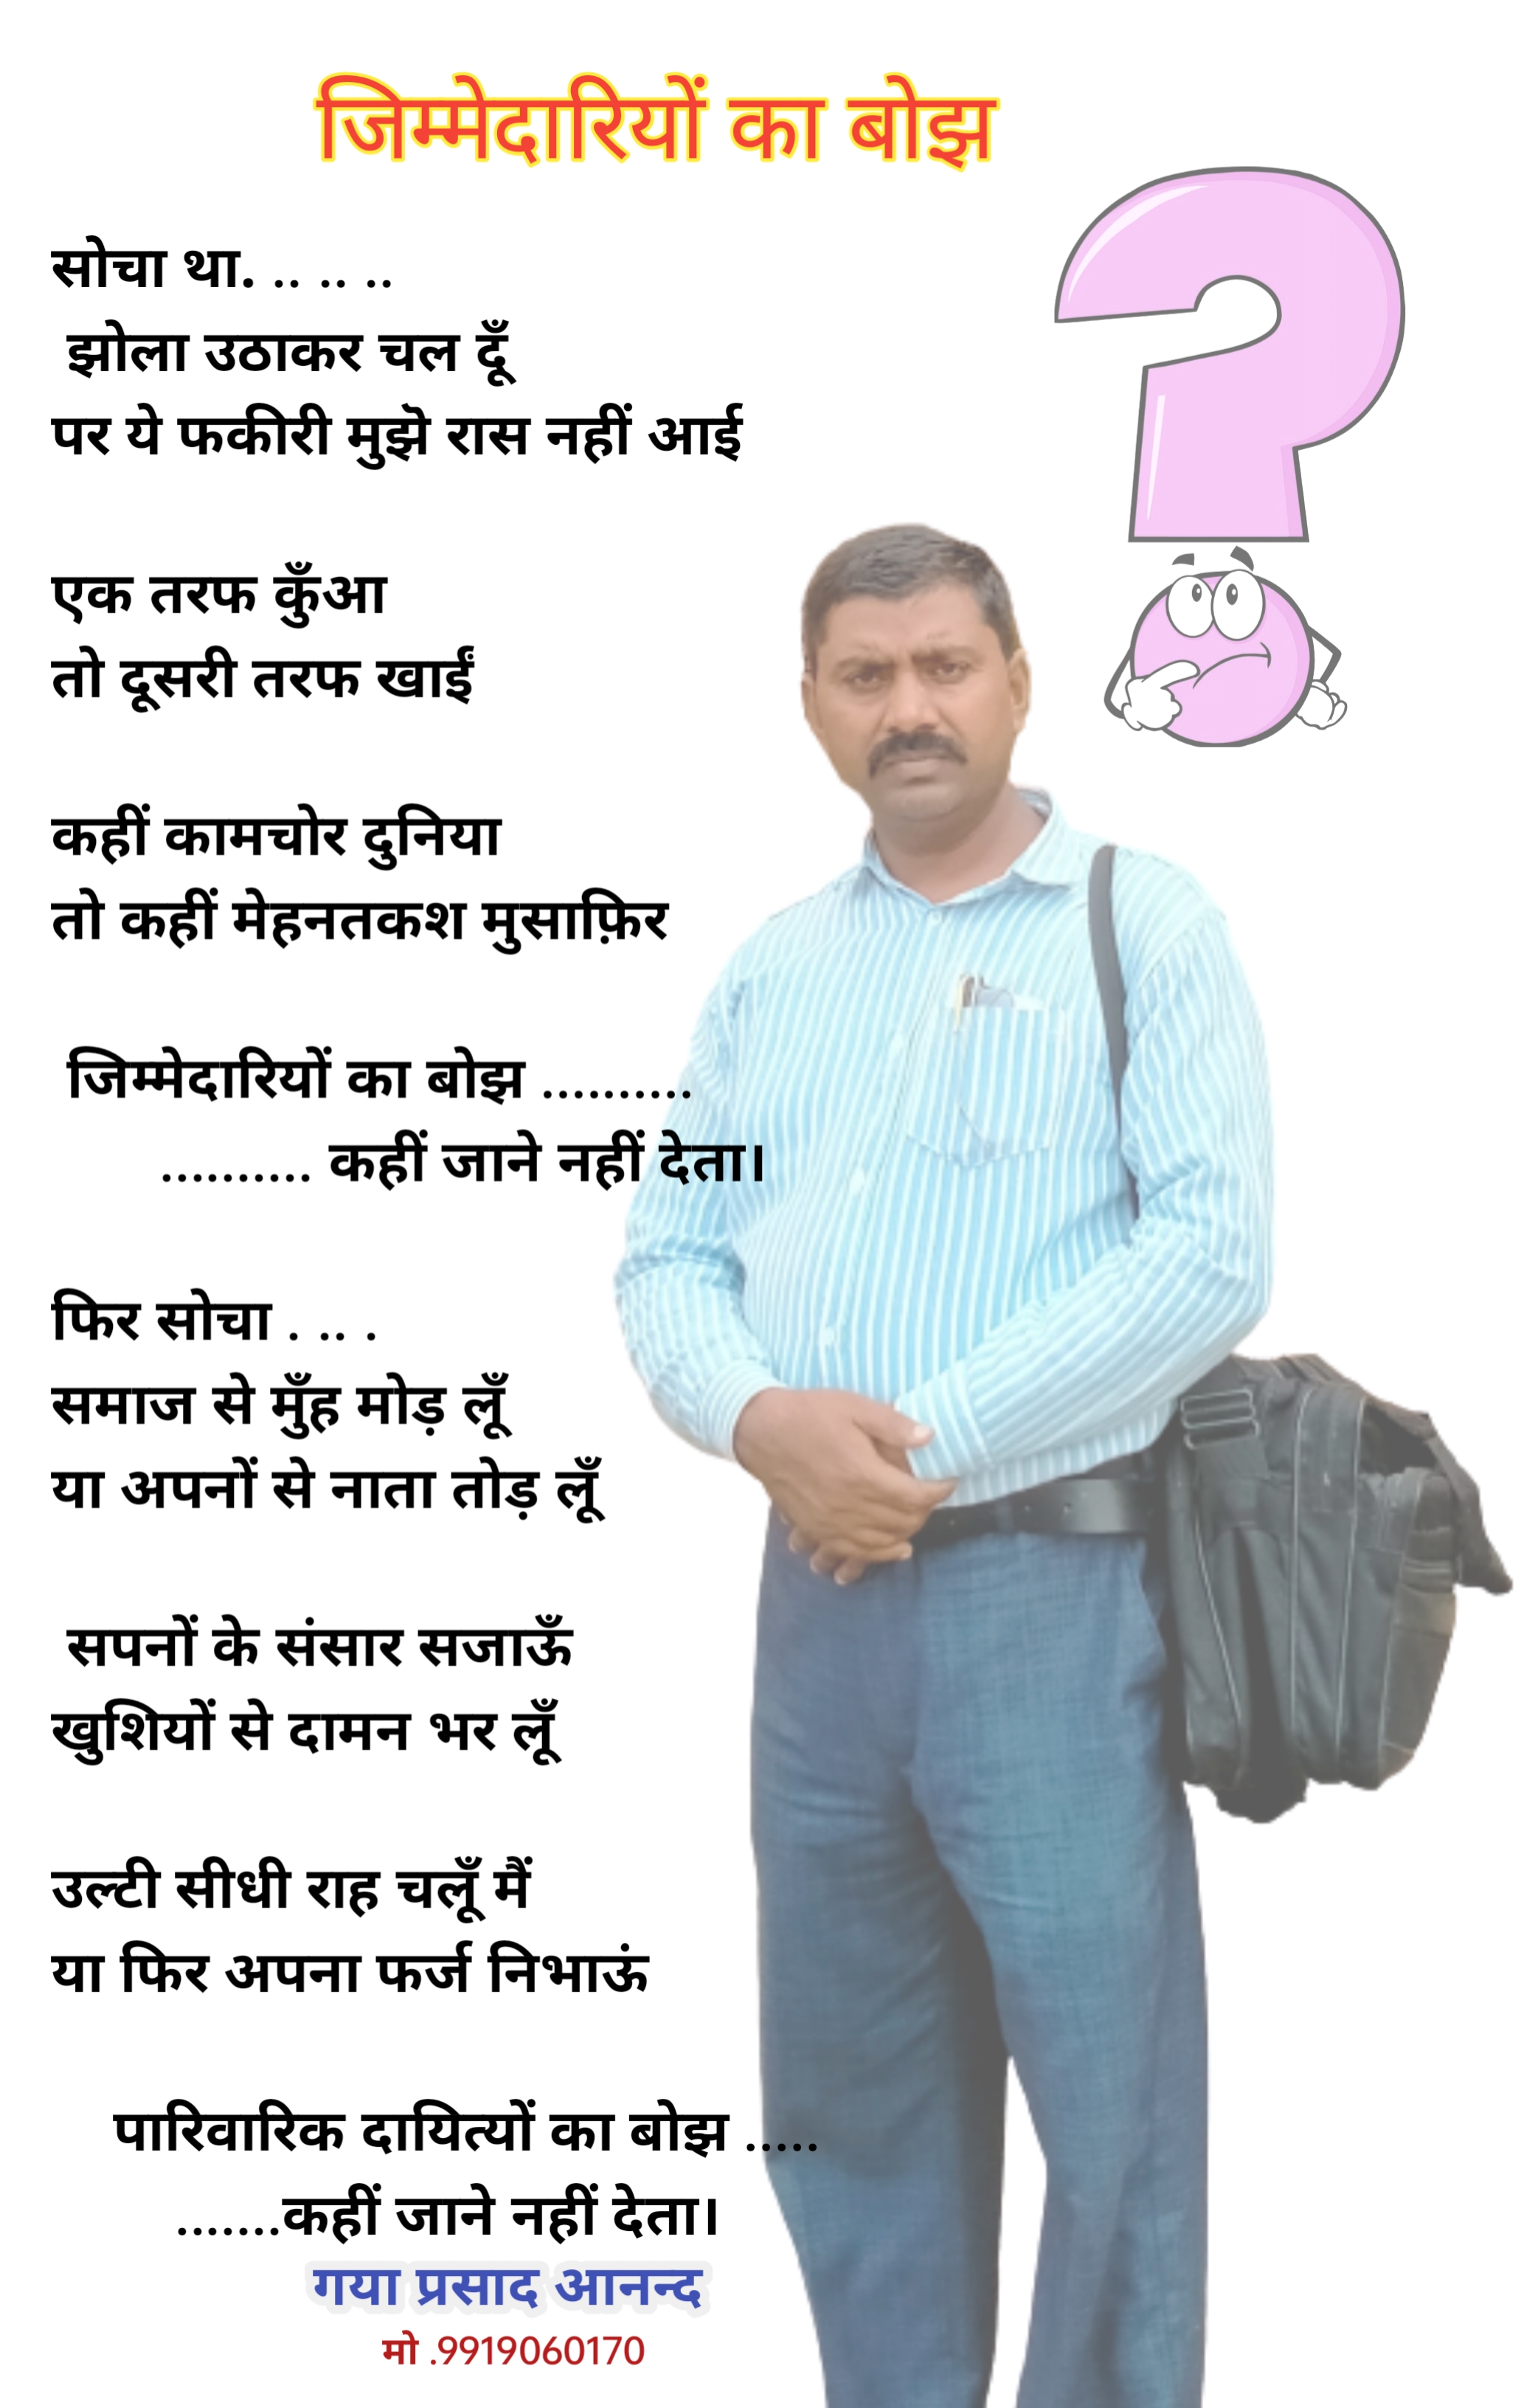 जिम्मेदारियों का बोझ
सोचा था. .. .. ..
झोला उठाकर चल दूँ
पर ये फकीरी मुझे रास नहीं आई
एक तरफ कुँआ
तो दूसरी तरफ खाईं
कहीं कामचोर दुनिया
तो कहीं मेहनतकश मुसाफ़िर
जिम्मेदारियों का बोझ ..........
.......... कहीं जाने नहीं देता।
फिर सोचा . .. .
समाज से मुँह मोड़ लूँ
या अपनों से नाता तोड़ लूँ
सपनों के संसार सजाऊँ
खुशियों से दामन भर लूँ
उल्टी सीधी राह चलूँ मैं
या फिर अपना फर्ज निभाऊं
पारिवारिक दायित्यों का बोझ .....
.......कहीं जाने नहीं देता।
गया प्रसाद आनन्द
मो .9919060170